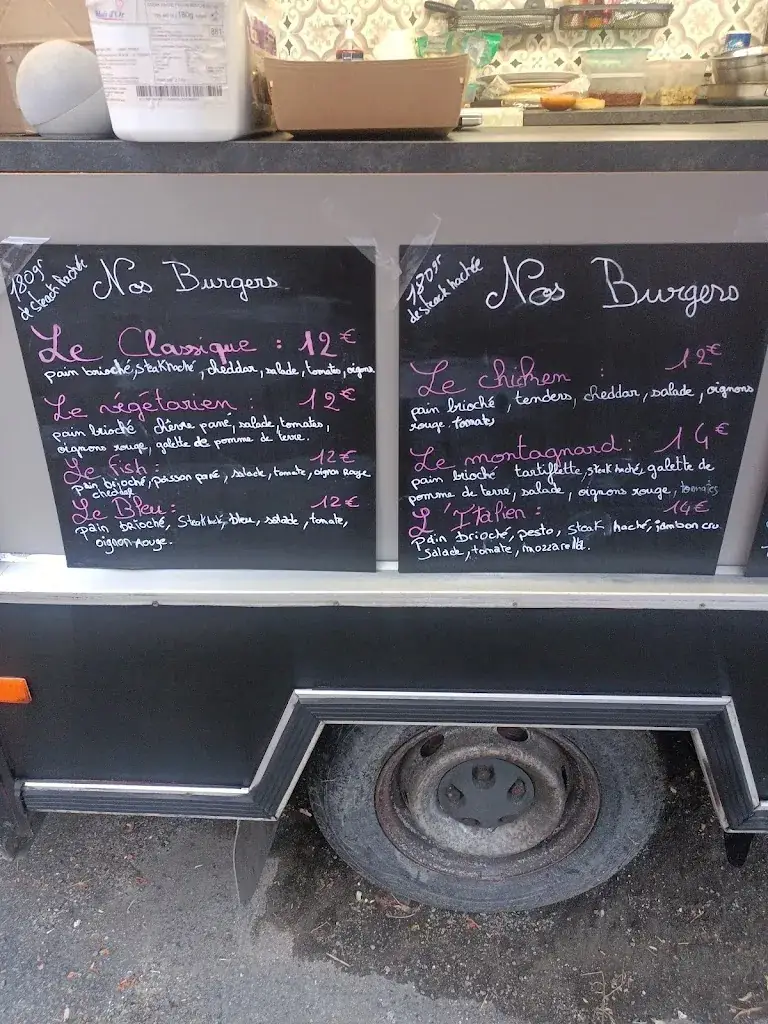 180gr
de Steack haché
Nos Burgers
Le Classique : 12€
pain brioché, steak haché, cheddar, salade, tomates, oignons
Le végétarien : 12€
pain brioché chèvre pané, salade, tomates,
oignons rouge, galette de pomme de terre.
Le fish : 12€
pain brioché, poisson pané, salade, tomate, oignon rouge
cheddar
Le Bleu : 12€
pain brioché, Steak haché, bleu, salade, tomate,
oignon rouge.
180gr
de Steack hachée
Nos Burgers
Le chicken : 12€
pain brioché, tenders, cheddar, salade, oignons
rouge, tomates
Le montagnard : 14€
pain brioché tartiflette, steak haché, galette de
pomme de terre, salade, oignons rouge, tomates
L'Italien : 14€
Pain brioché, pesto, steak haché, jambon cru
Salade, tomate, mozzarella.